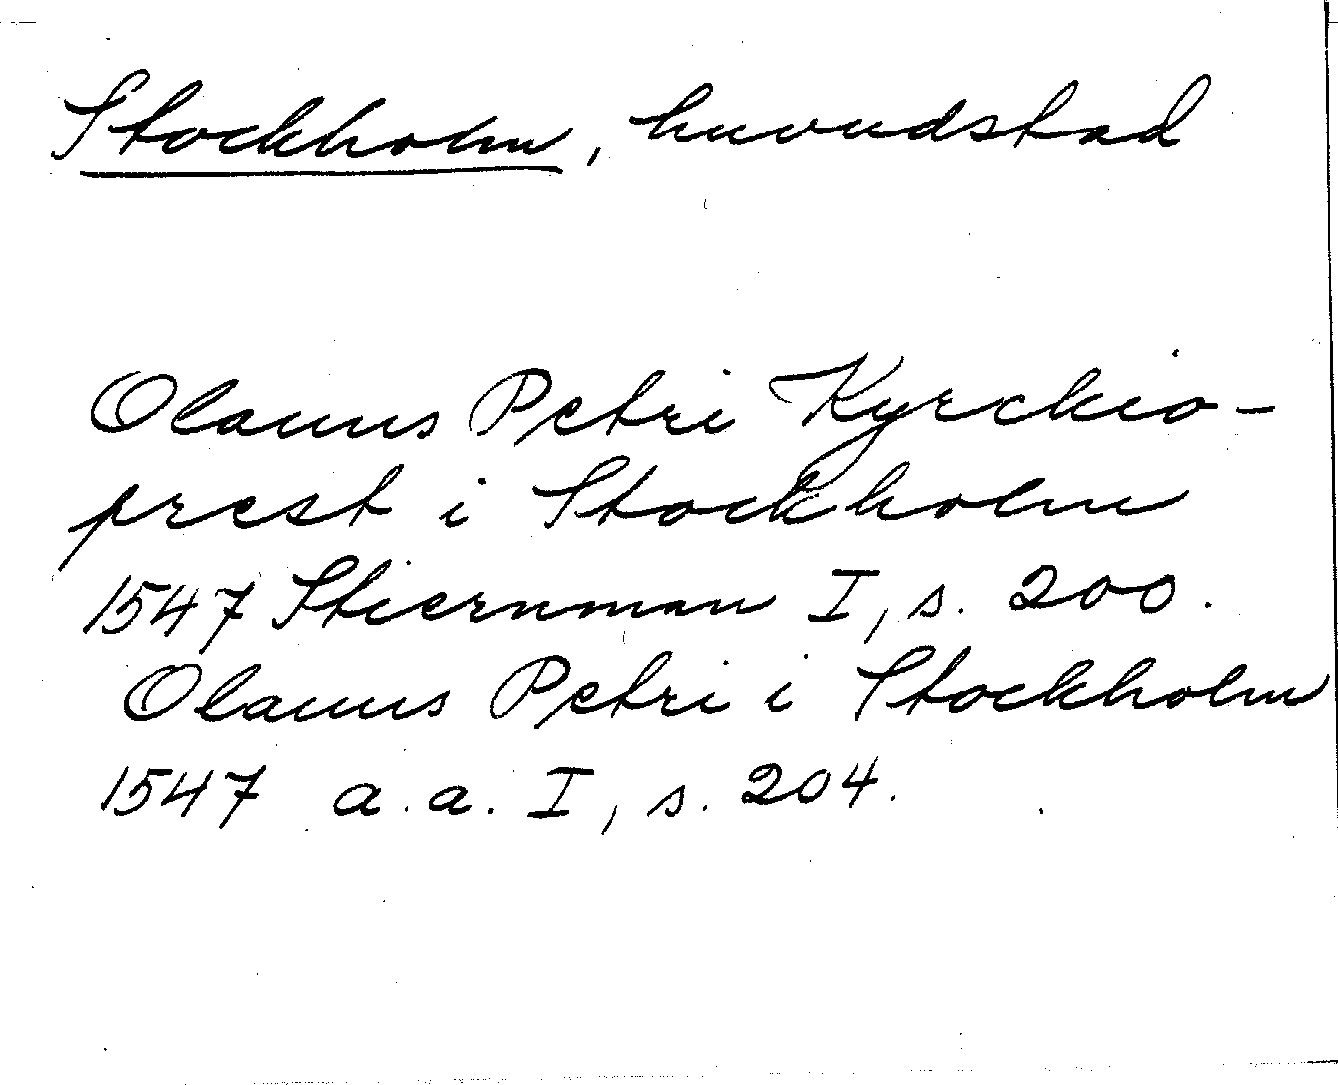 Stockholm, huvudstad
Olauus Petri Kyrckio-
prest i Stockholm
1547 Stiernman I, s. 200.
Olauus Petri i Stockholm
1547 a.a. I, s. 204.